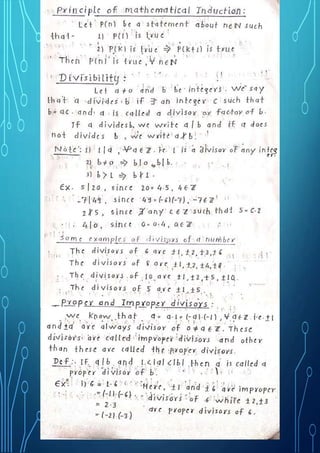 Principle of mathematical Induction:
Let P(n) be a statement about n∈N such
that- 1) P(1) is true
2) P(k) is true ⇒ P(k+1) is true
Then P(n) is true, ∀ n∈N
Divisibility:
Let a≠0 and b be integers, we say
that a divides b if ∃ an integer c such that
b=ac and a is called a divisor or factor of b.
If a divides b, we write a|b and if a does
not divides b, we write a∤b.
Note: 1) 1|a, ∀ a∈Z i.e. 1 is a divisor of any integer
2) b≠0 ⇒ b|0, b|b.
3) b>1 ⇒ b∤1.
Ex. 5|20, since 20=4·5, 4∈Z
-7|49, since 49=(-7)(-7), -7∈Z
2∤5, since ∄ any c∈Z such that 5=c·2
a|0, since 0=0·a, 0∈Z
Some examples of divisors of a number
The divisors of 6 are ±1, ±2, ±3, ±6
The divisors of 8 are ±1, ±2, ±4, ±8
The divisors of 10 are ±1, ±2, ±5, ±10
The divisors of 5 are ±1, ±5
Proper and Improper divisors:
We know that a=a·1=(-a)(-1), ∀ a∈Z i.e ±1
and ±a are always divisor of 0≠a∈Z. These
divisors are called improper divisors and other
than these are called the proper divisors.
Def: If a|b and 1<|a|<|b| then a is called a
proper divisor of b.
Ex: 1) 6=1·6 Here, ±1 and ±6 are improper
=(-1)(-6) divisors of 6 while ±2, ±3
=2·3 are proper divisors of 6.
=(-2)(-3)